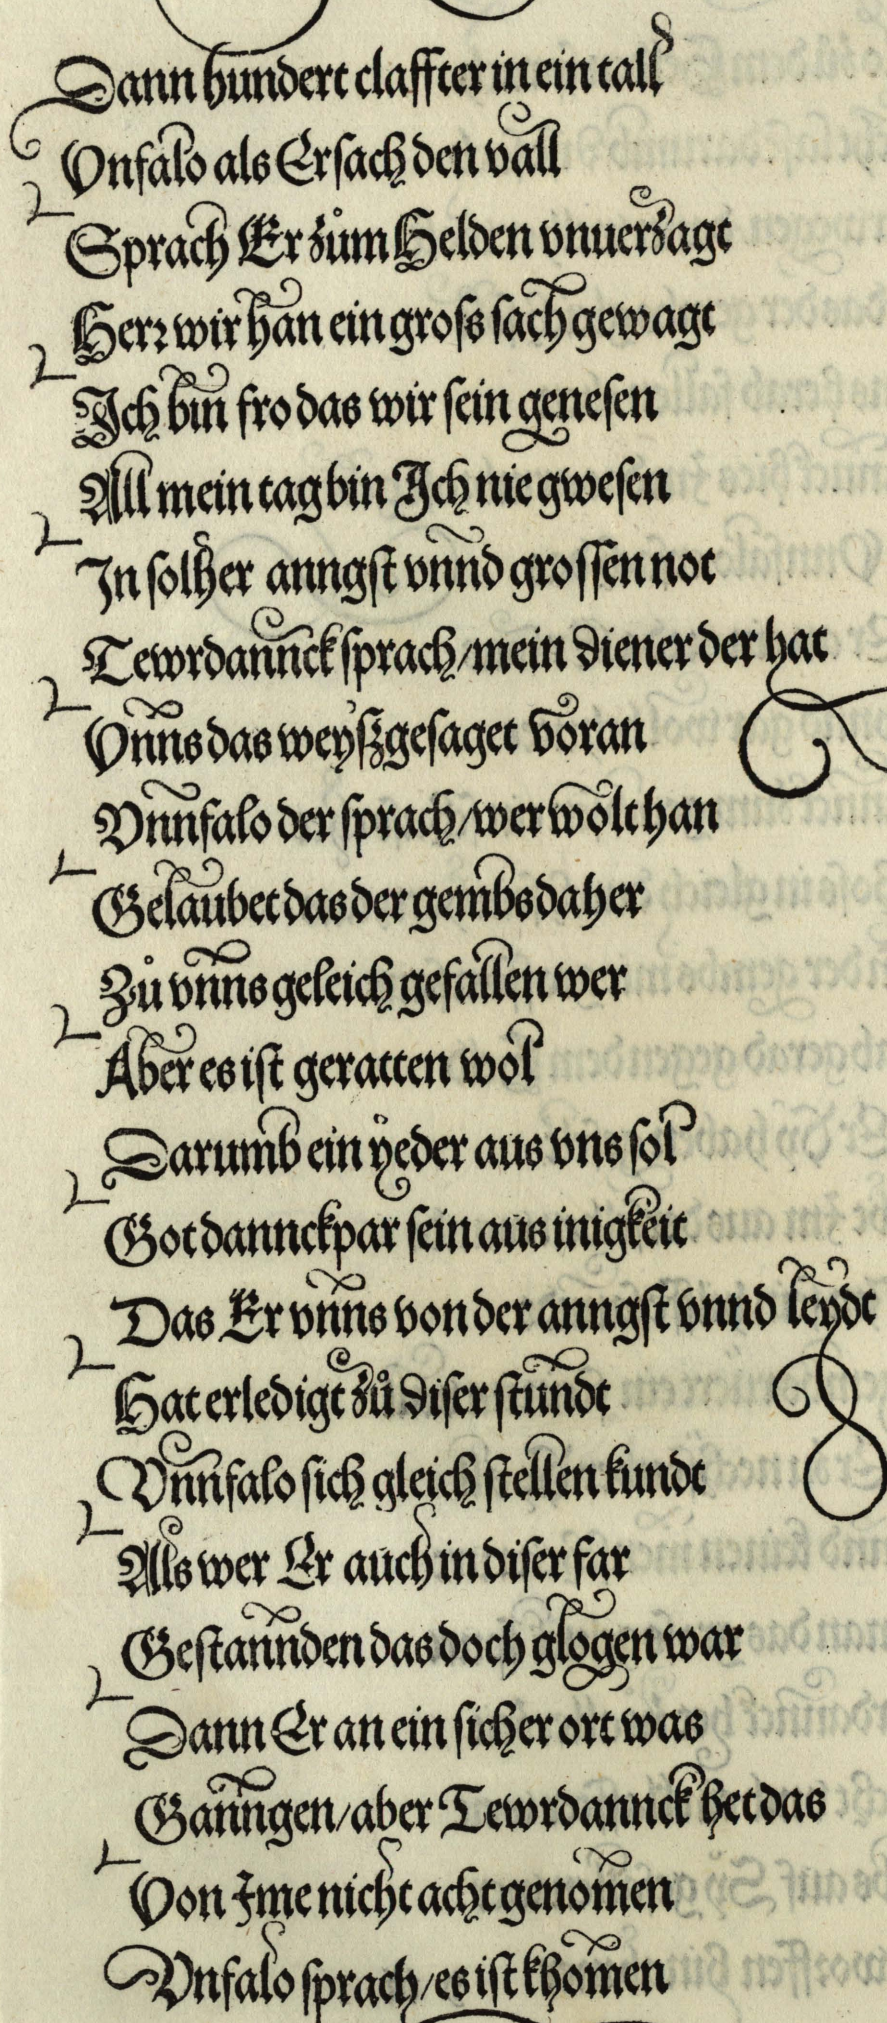 Dann hundert claffter in ein tall
Vnfalo als Er sach den vall
Sprach Er zům Helden vnuerzagt
Herr wir han ein gross sach gewagt
Ich bin fro das wir sein genesen
All mein tag bin Ich nie gwesen
In solher anngst vnnd grossen not
Tewrdannck sprach/mein diener der hat
Vnns das weyß gesaget voran
Vnnfalo der sprach/wer wolt han
Gelaubet das der gembs daher
Zů vnns geleich gefallen wer
Aber es ist geratten wol
Darumb ein yeder aus vns sol
Got dannckpar sein aus inigkeit
Das Er vnns von der anngst vnnd leydt
Hat erledigt zů diser stundt
Vnnfalo sich gleich stellen kundt
Als wer Er auch in diser far
Gestannden das doch glogen war
Dann Er an ein sicher ort was
Ganngen/aber Tewrdannck het das
Von Ime nicht acht genom̄en
Vnfalo sprach/es ist khom̄en